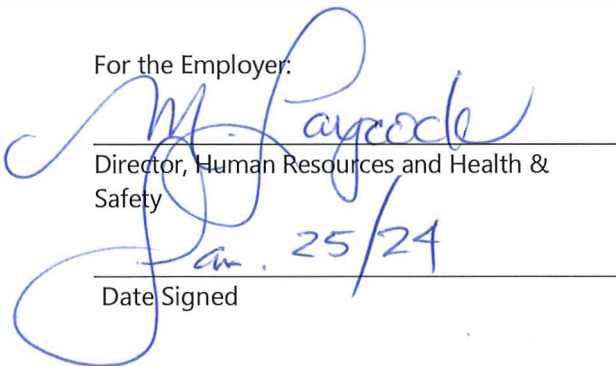 For the Employer:
M. Laycock
Director, Human Resources and Health &
Safety
Jan. 25/24
Date Signed